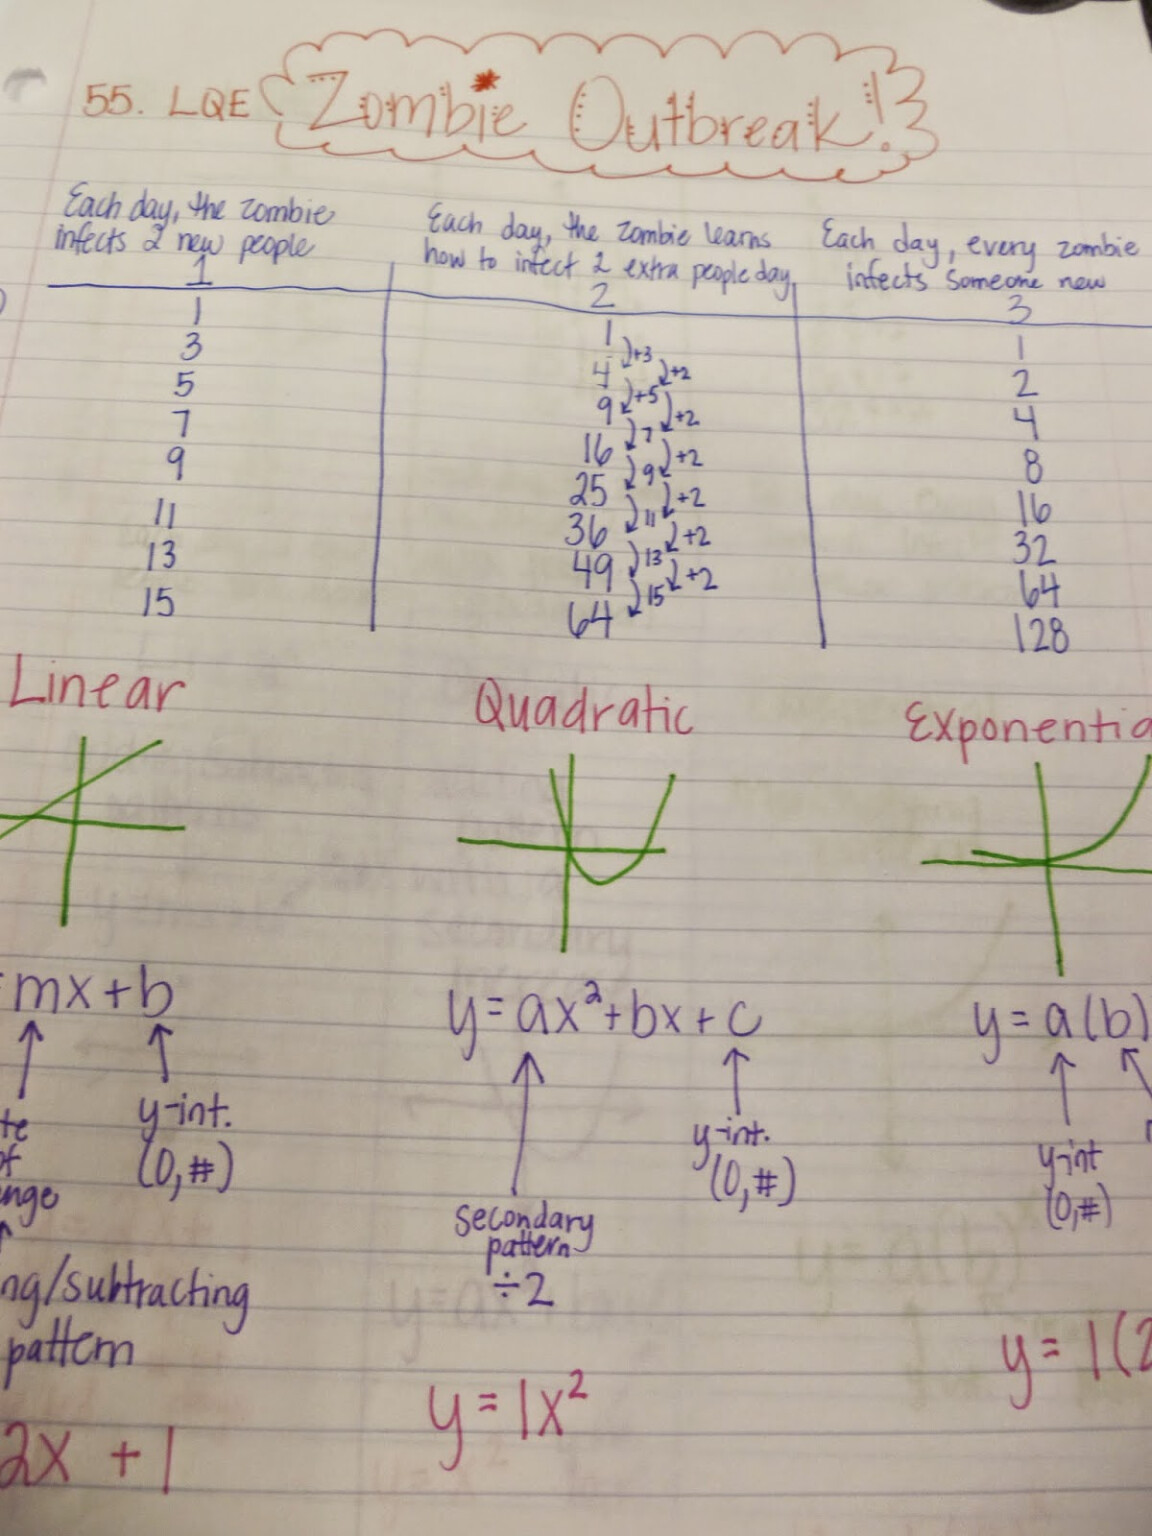 55. LQE Zombie Outbreak!
Each day, the zombie
infects 2 new people
1
1
3
5
7
9
11
13
15
Each day, the zombie learns
how to infect 2 extra people day
2
1
4
9
16
25
36
49
64
+3
+5
7
9
11
13
15
+2
+2
+2
+2
+2
+2
Each day, every zombie
infects someone new
3
1
2
4
8
16
32
64
128
Linear
Quadratic
Exponentia
mx+b
te
of
nge
y-int.
(0,#)
ng/subtracting
pattern
2x + 1
y=ax²+bx+c
secondary
pattern
÷2
y-int.
(0,#)
y=1x²
y=a(b)
y-int
(0,#)
y=1(2